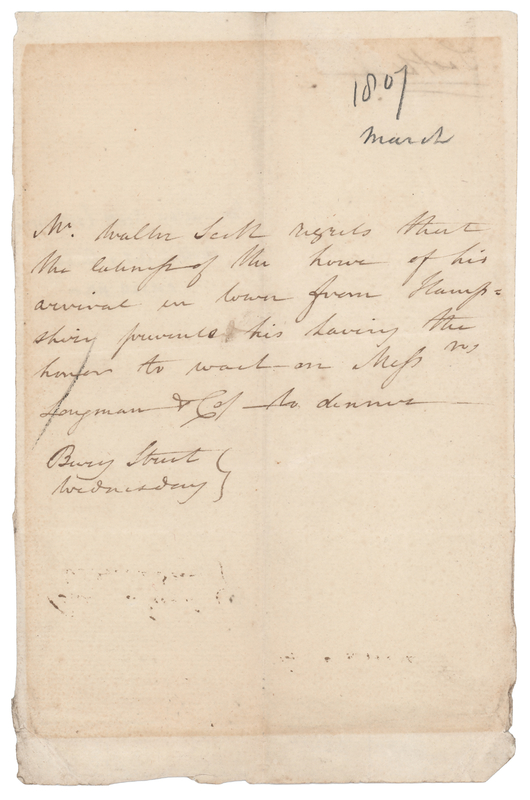 1807
March
Mr. Walter Scott regrets that
the lateness of the hour of his
arrival in town from Hamp=
shire prevents his having the
honor to wait on Mess rs
Longman & Co to dinner
Bury Street
Wednesday